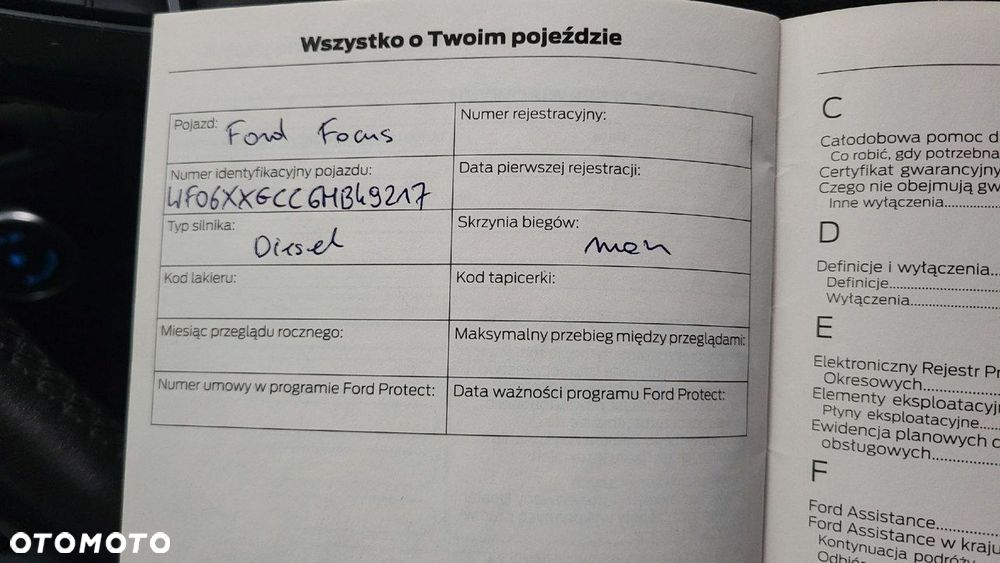 Wszystko o Twoim pojeździe
Pojazd: Ford Focus
Numer rejestracyjny:
Numer identyfikacyjny pojazdu:
WF06XXGCC6MB49217
Data pierwszej rejestracji:
Typ silnika:
Diesel
Skrzynia biegów:
man
Kod lakieru:
Kod tapicerki:
Miesiąc przeglądu rocznego:
Maksymalny przebieg między przeglądami:
Numer umowy w programie Ford Protect:
Data ważności programu Ford Protect:
C
Całodobowa pomoc d
Co robić, gdy potrzebna
Certyfikat gwarancyjny
Czego nie obejmują gw
Inne wyłączenia
D
Definicje i wyłączenia
Definicje
Wyłączenia
E
Elektroniczny Rejestr Pr
Okresowych
Elementy eksploatacyj
Płyny eksploatacyjne
Ewidencja planowych
obsługowych
F
Ford Assistance
Ford Assistance w kraju
Kontynuacja podróży
OTOMOTO